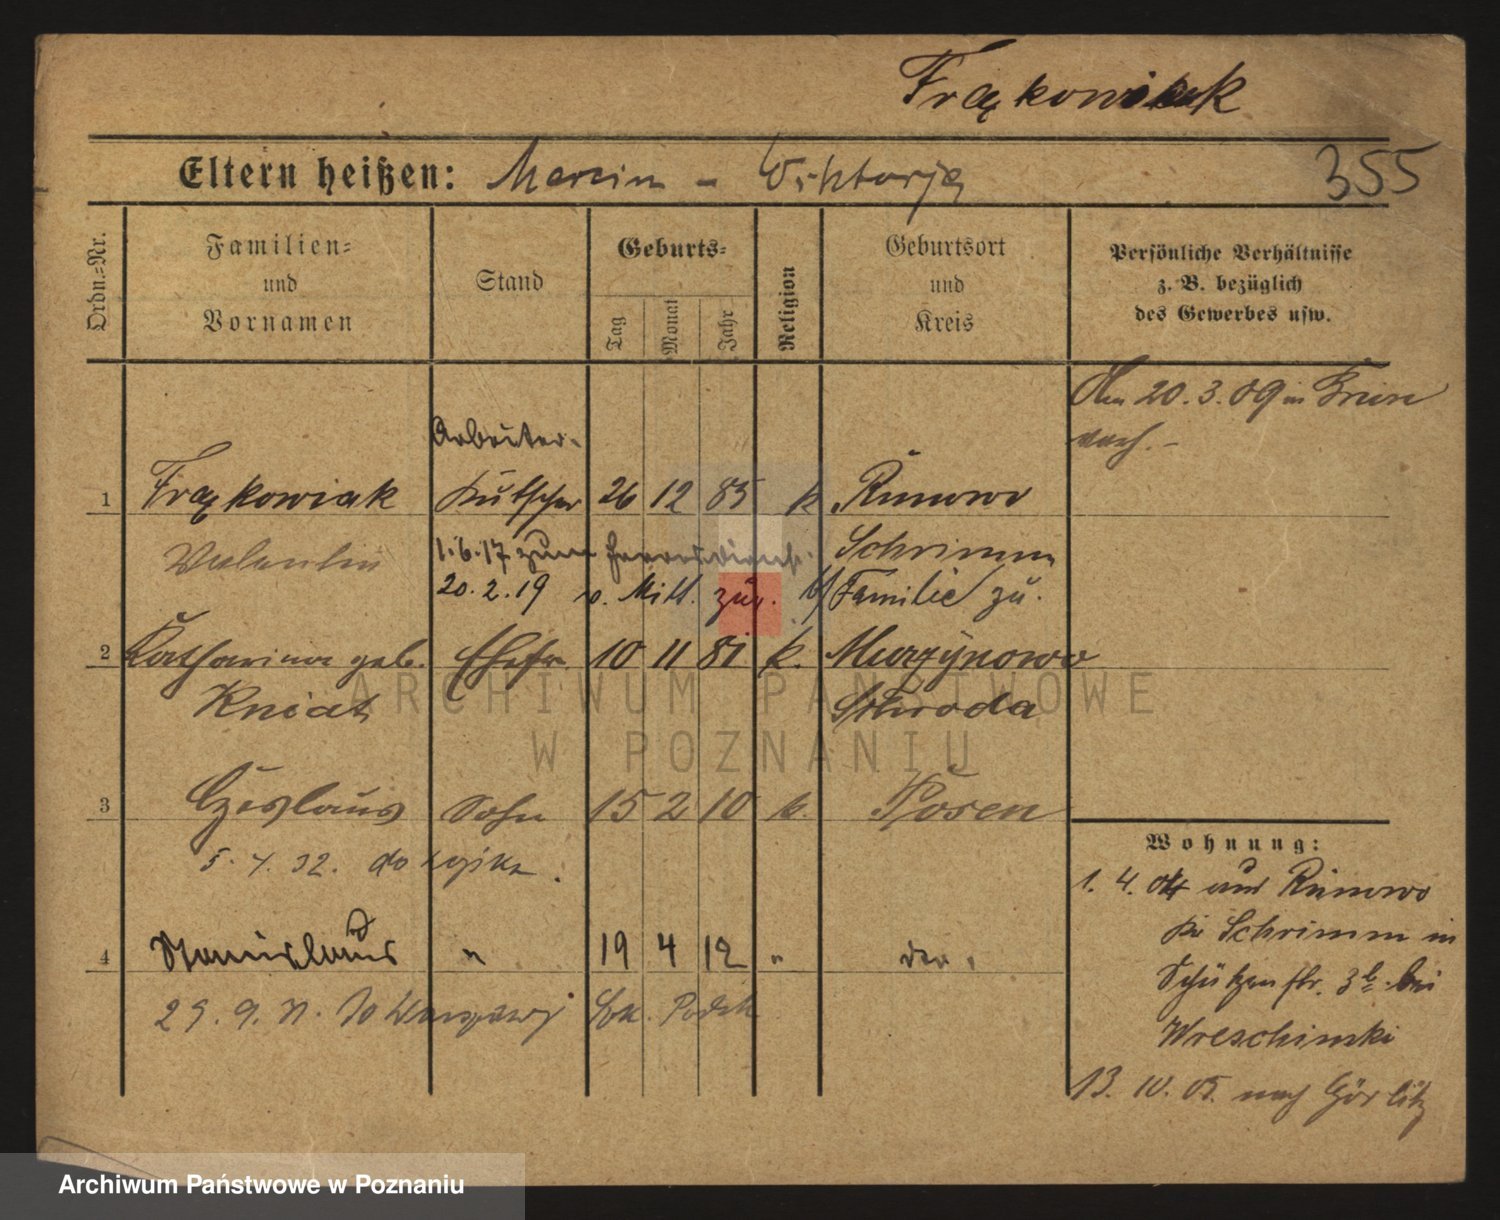 Frąkowiak
Eltern heißen: Marcin - Wiktorja 355
Ordn.=Nr.
Familien=
und
Vornamen
Stand
Geburts=
Tag
Monat
Jahr
Religion
Geburtsort
und
Kreis
Persönliche Verhältnisse
z. B. bezüglich
des Gewerbes usw.
Am 20.3.09 in
Arbeiter.
1 Frąkowiak Kutscher 26 12 85 k Runowo
Valentin 1.6.17 zum Heeresdienst. Schrimm
20.2.19 v. Milt. zur. Familie zu.
2 Katharina geb. Ehefr. 10 11 81 k. Murzynowo
Kniat Schroda
3 Czeslaus Sohn 15 2 10 k. Posen
5.4.32. do
4 Stanislaus " 19 4 12 " "
29.9.31. do
Wohnung:
1.4.04 aus Runowo
Kr Schrimm in
Schützenstr. 3b bei
Wreschinski
13.10.05. nach Görlitz
ARCHIWUM PAŃSTWOWE
W POZNANIU
Archiwum Państwowe w Poznaniu